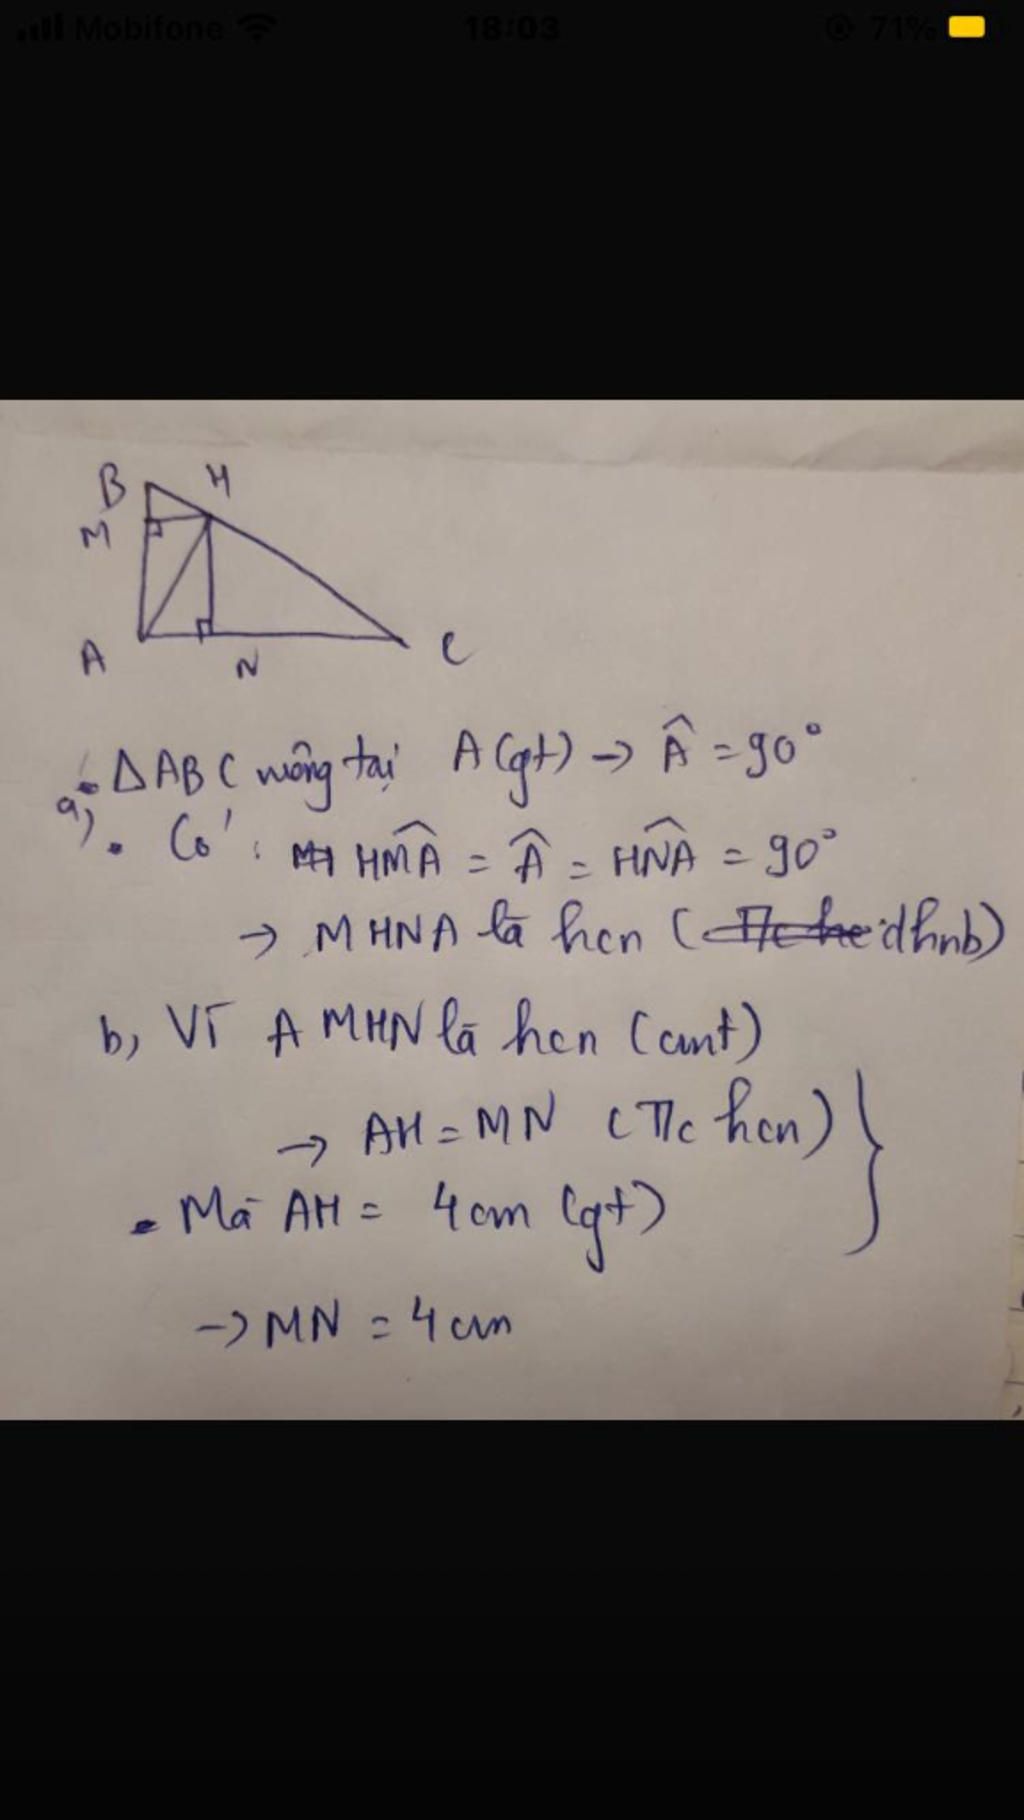 Mobifone 18:03 71%
B H
M
A N C
. ΔABC vuông tại A (gt) → Â = 90°
a) . Có : HM̂A = Â = HN̂A = 90°
→ MHNA là hcn (dhnb)
b, Vì AMHN là hcn (cmt)
→ AH = MN (T/c hcn)
. Mà AH = 4cm (gt)
→ MN = 4cm